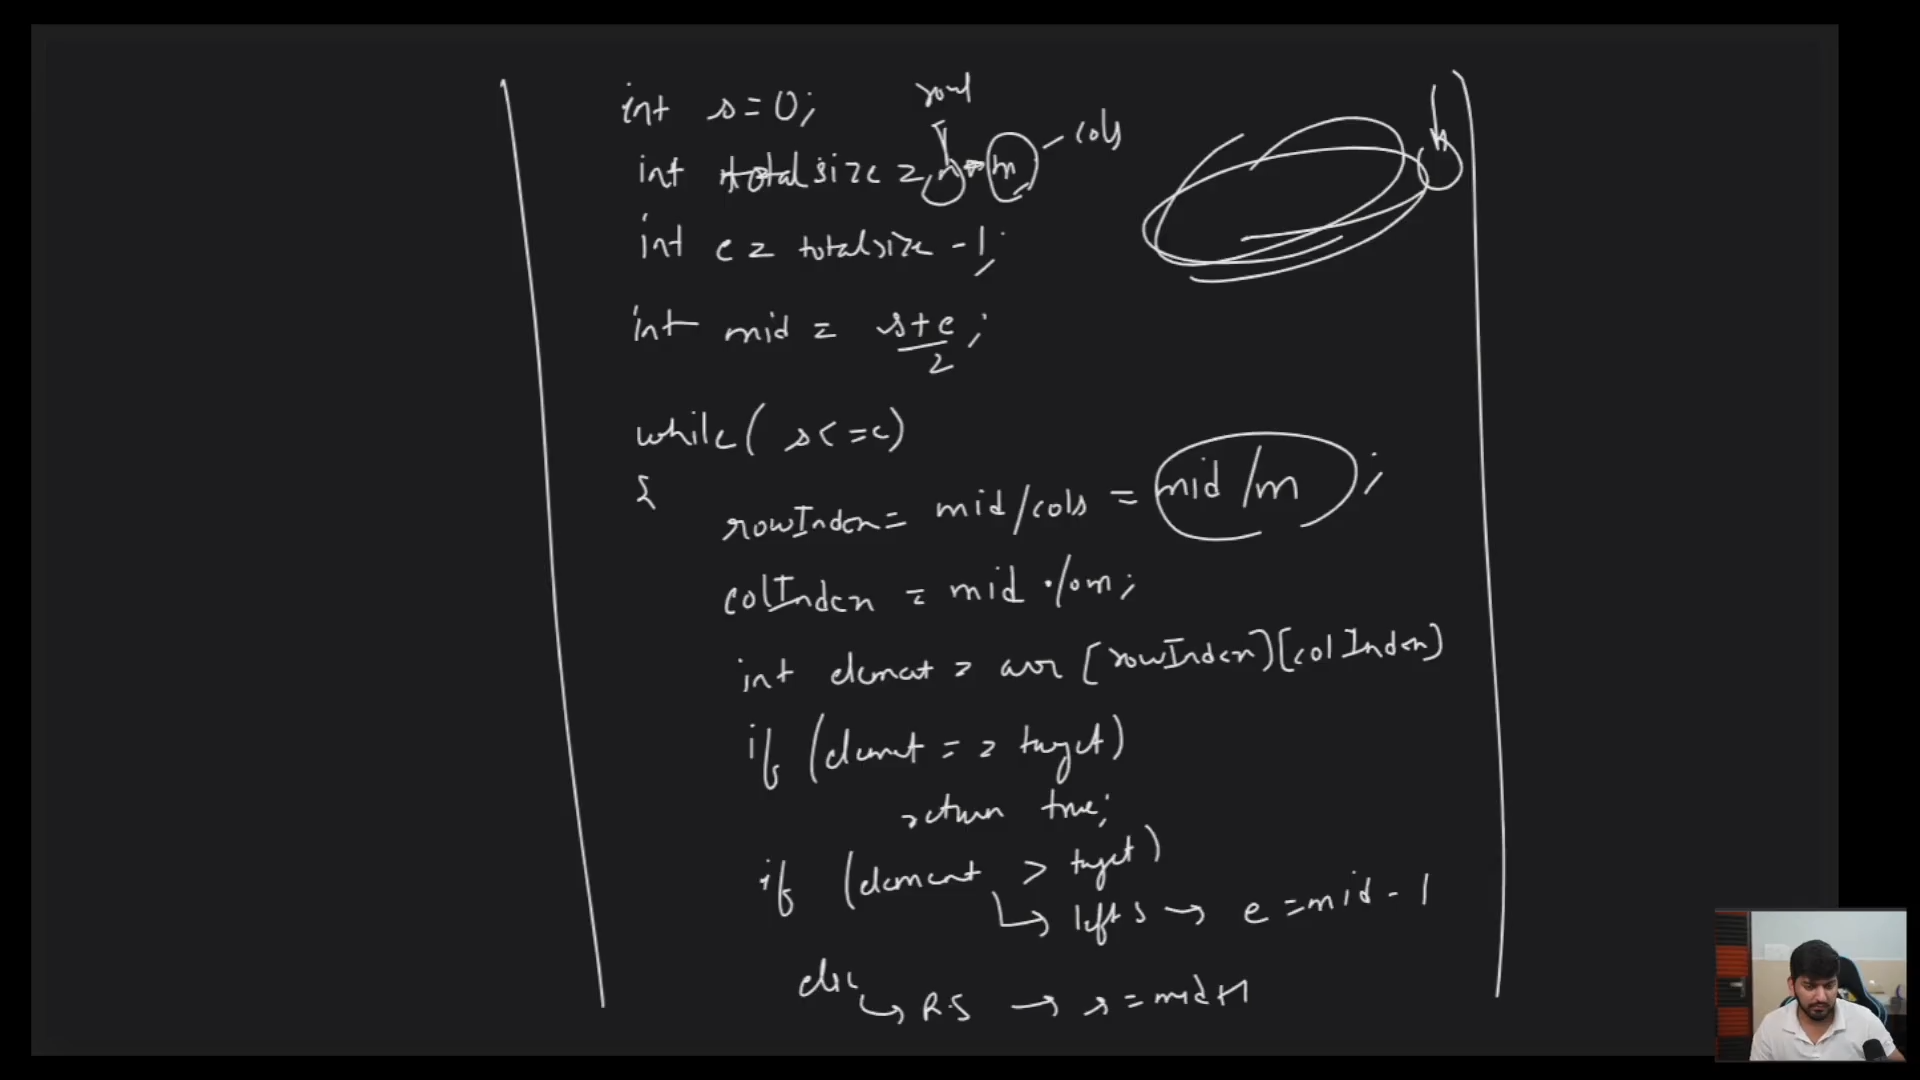 int s=0;
rows
int totalsize = n * m - cols
int e = totalsize - 1;
int mid = s+e/2;
while( s<=e)
{
rowIndex= mid/cols = mid/m ;
colIndex = mid %m;
int element = arr [rowIndex][colIndex]
if (element == target)
return true;
if (element > target)
left S → e =mid-1
else
R.S → s =mid+1